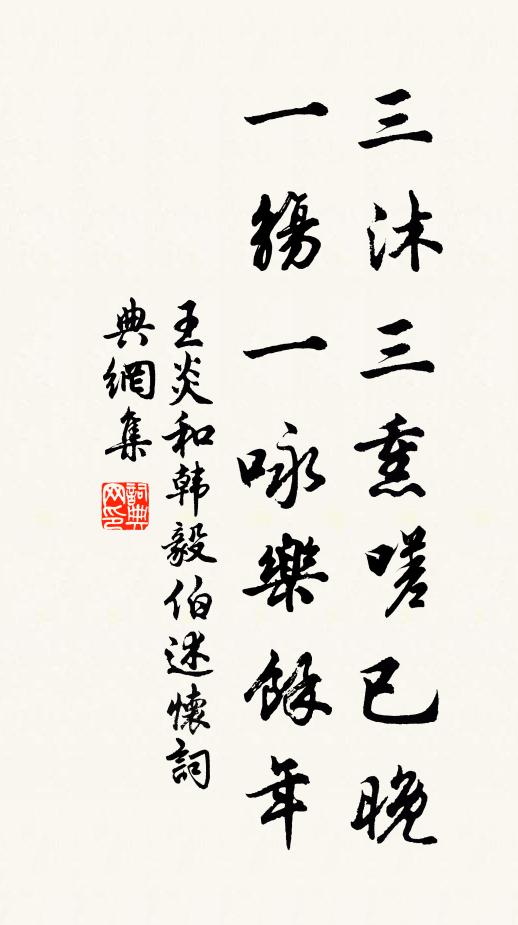 三沐三熏嗟已晚
一觴一咏樂餘年
王炎和韩毅伯述懷詞
典網集
詞典网印